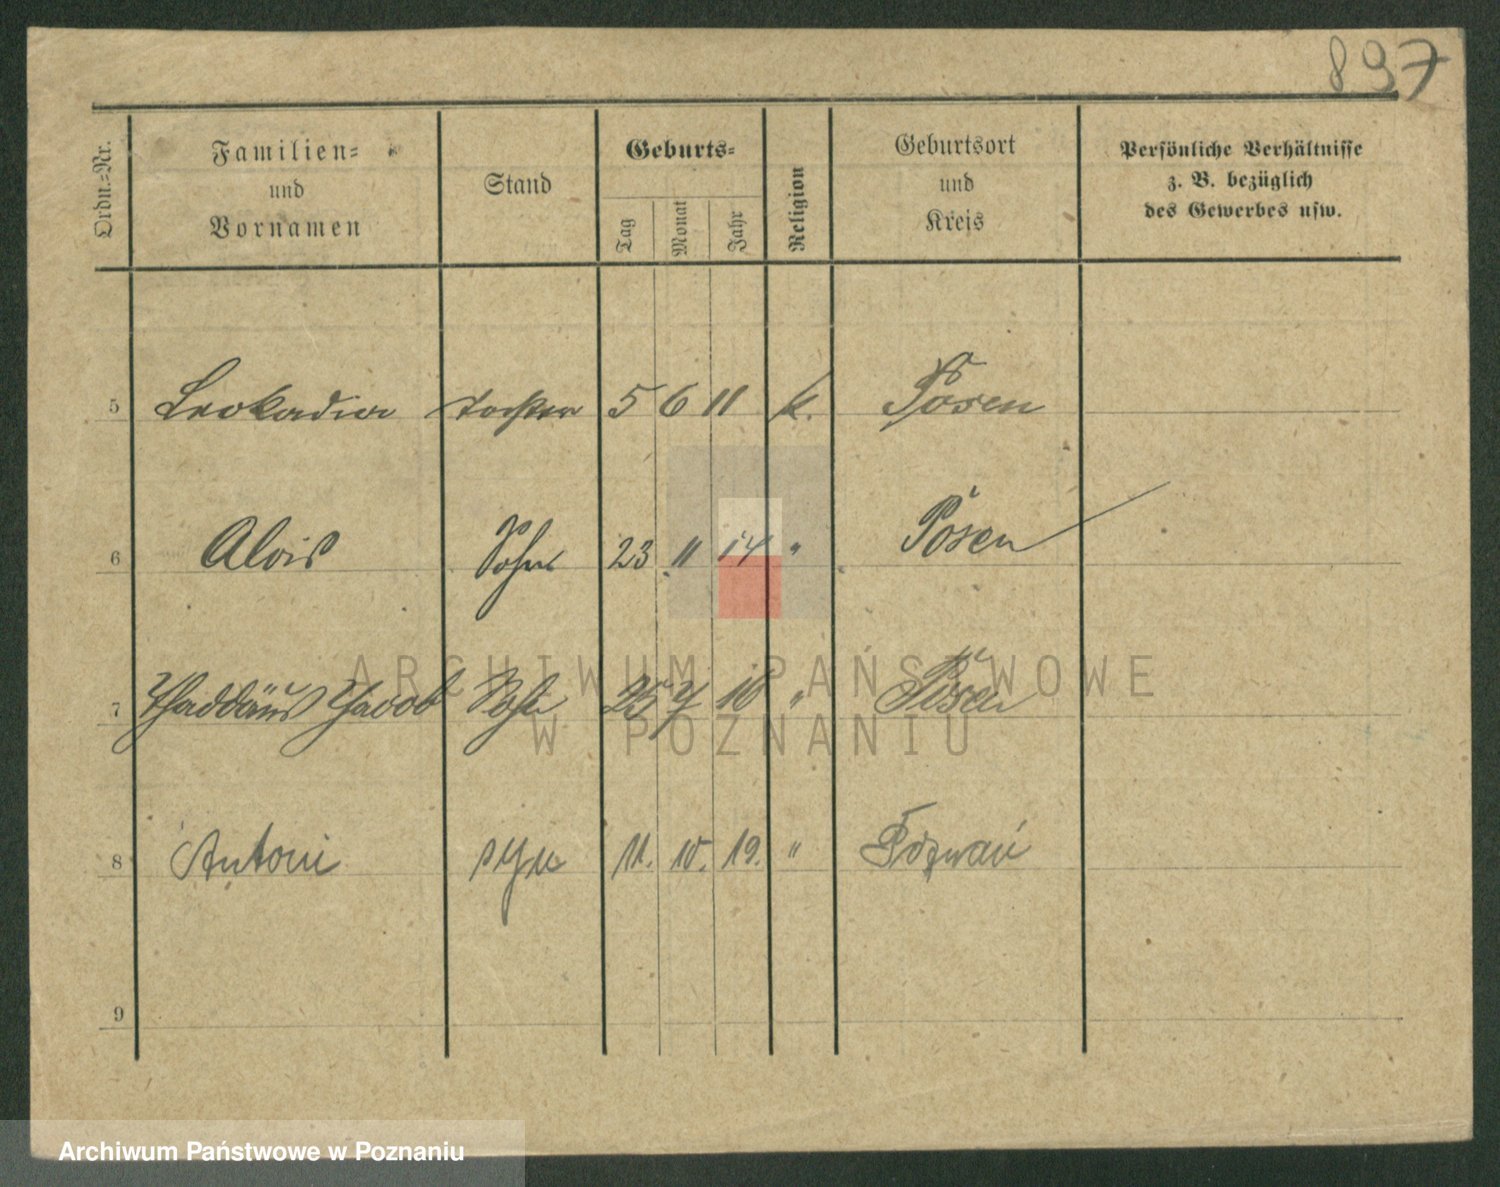 897
Ordn.-Nr.
Familien-
und
Vornamen
Stand
Geburts-
Tag
Monat
Jahr
Religion
Geburtsort
und
Kreis
Persönliche Verhältnisse
z. B. bezüglich
des Gewerbes usw.
5 Leokadia Tochter 5 6 11 k. Posen
6 Alois Sohn 23 11 14 " Posen
7 Thaddäus Jacob Sohn 25 7 16 " Posen
8 Antoni syn 11. 10. 19. " Poznań
9
ARCHIWUM PAŃSTWOWE
W POZNANIU
Archiwum Państwowe w Poznaniu